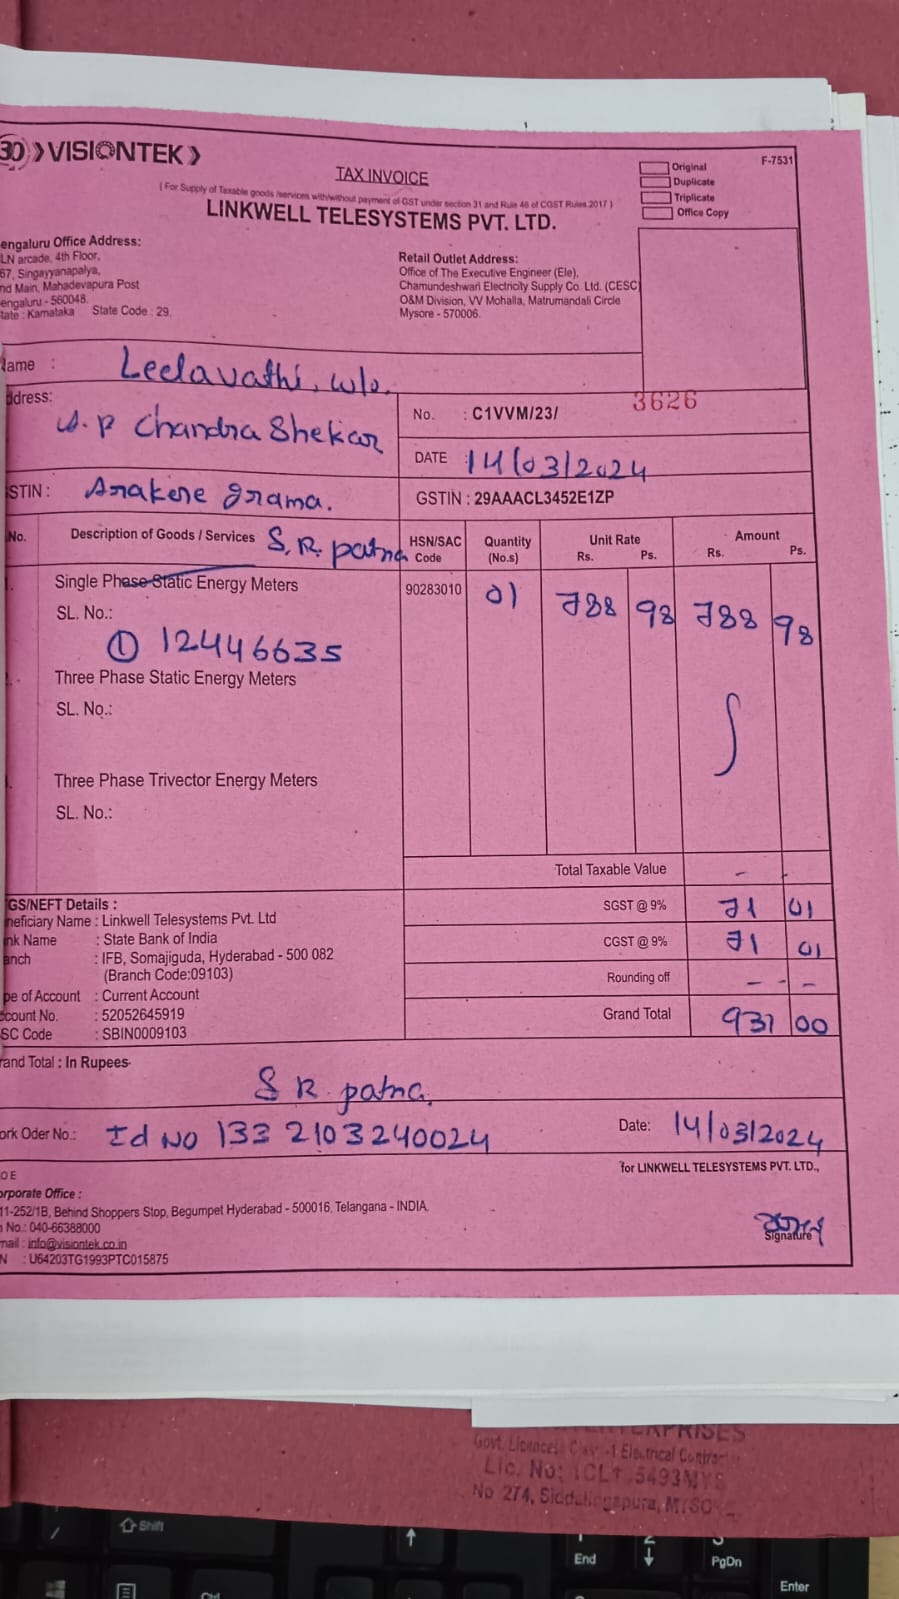 30 VISIONTEK
F-7531
TAX INVOICE
Original
Duplicate
Triplicate
Office Copy
( For Supply of Taxable goods /services with/without payment of GST under section 31 and Rule 46 of CGST Rules 2017 )
LINKWELL TELESYSTEMS PVT. LTD.
engaluru Office Address:
LN arcade, 4th Floor,
67, Singayyanapalya,
nd Main, Mahadevapura Post
engaluru - 560048.
tate : Karnataka State Code : 29.
Retail Outlet Address:
Office of The Executive Engineer (Ele),
Chamundeshwari Electricity Supply Co. Ltd. (CESC)
O&M Division, VV Mohalla, Matrumandali Circle
Mysore - 570006.
ame : Leelavathi, w/o.
ddress: S. P Chandra Shekar
No. : C1VVM/23/ 3626
DATE 14/03/2024
STIN : Arakere grama.
GSTIN : 29AAACL3452E1ZP
No. Description of Goods / Services S. R. patna HSN/SAC Code Quantity (No.s) Unit Rate Rs. Ps. Amount Rs. Ps.
Single Phase Static Energy Meters 90283010 01 788 98 788 98
SL. No.:
① 12446635
Three Phase Static Energy Meters
SL. No.:
Three Phase Trivector Energy Meters
SL. No.:
Total Taxable Value - -
GS/NEFT Details :
neficiary Name : Linkwell Telesystems Pvt. Ltd
nk Name : State Bank of India
anch : IFB, Somajiguda, Hyderabad - 500 082
(Branch Code:09103)
pe of Account : Current Account
ccount No. : 52052645919
SC Code : SBIN0009103
SGST @ 9% 71 01
CGST @ 9% 71 01
Rounding off - - -
Grand Total 931 00
rand Total : In Rupees
S R. patna.
ork Oder No.: Id NO 133 2103240024
Date: 14/03/2024
for LINKWELL TELESYSTEMS PVT. LTD.,
O E
orporate Office :
11-252/1B, Behind Shoppers Stop, Begumpet Hyderabad - 500016, Telangana - INDIA.
No.: 040-66388000
mail : info@visiontek.co.in
N : U64203TG1993PTC015875
Signature
Govt. Licences Class -1 Electrical Contractor
Lic. No: 1CL1 5493MYS
No 274, Siddalingapura,
Shift
End
PgDn
Enter
Ctrl